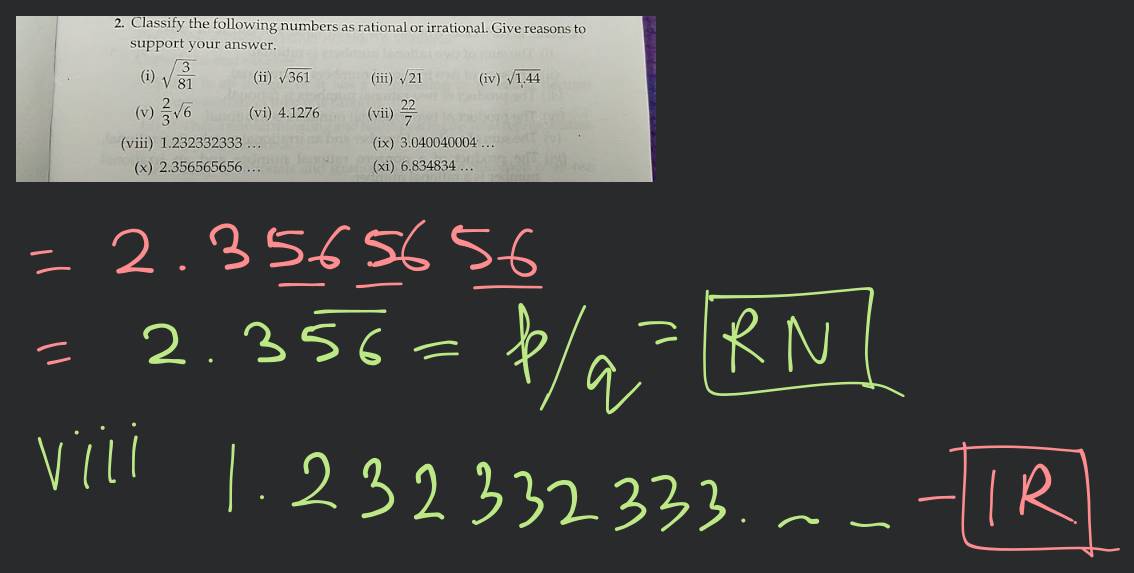 2. Classify the following numbers as rational or irrational. Give reasons to
support your answer.
(i) √(3/81) (ii) √361 (iii) √21 (iv) √1.44
(v) 2/3 √6 (vi) 4.1276 (vii) 22/7
(viii) 1.232332333 ... (ix) 3.040040004 ...
(x) 2.356565656 ... (xi) 6.834834 ...
= 2.3565656
= 2.35̅6̅ = p/q = RN
viii 1.232332333. - - - IR